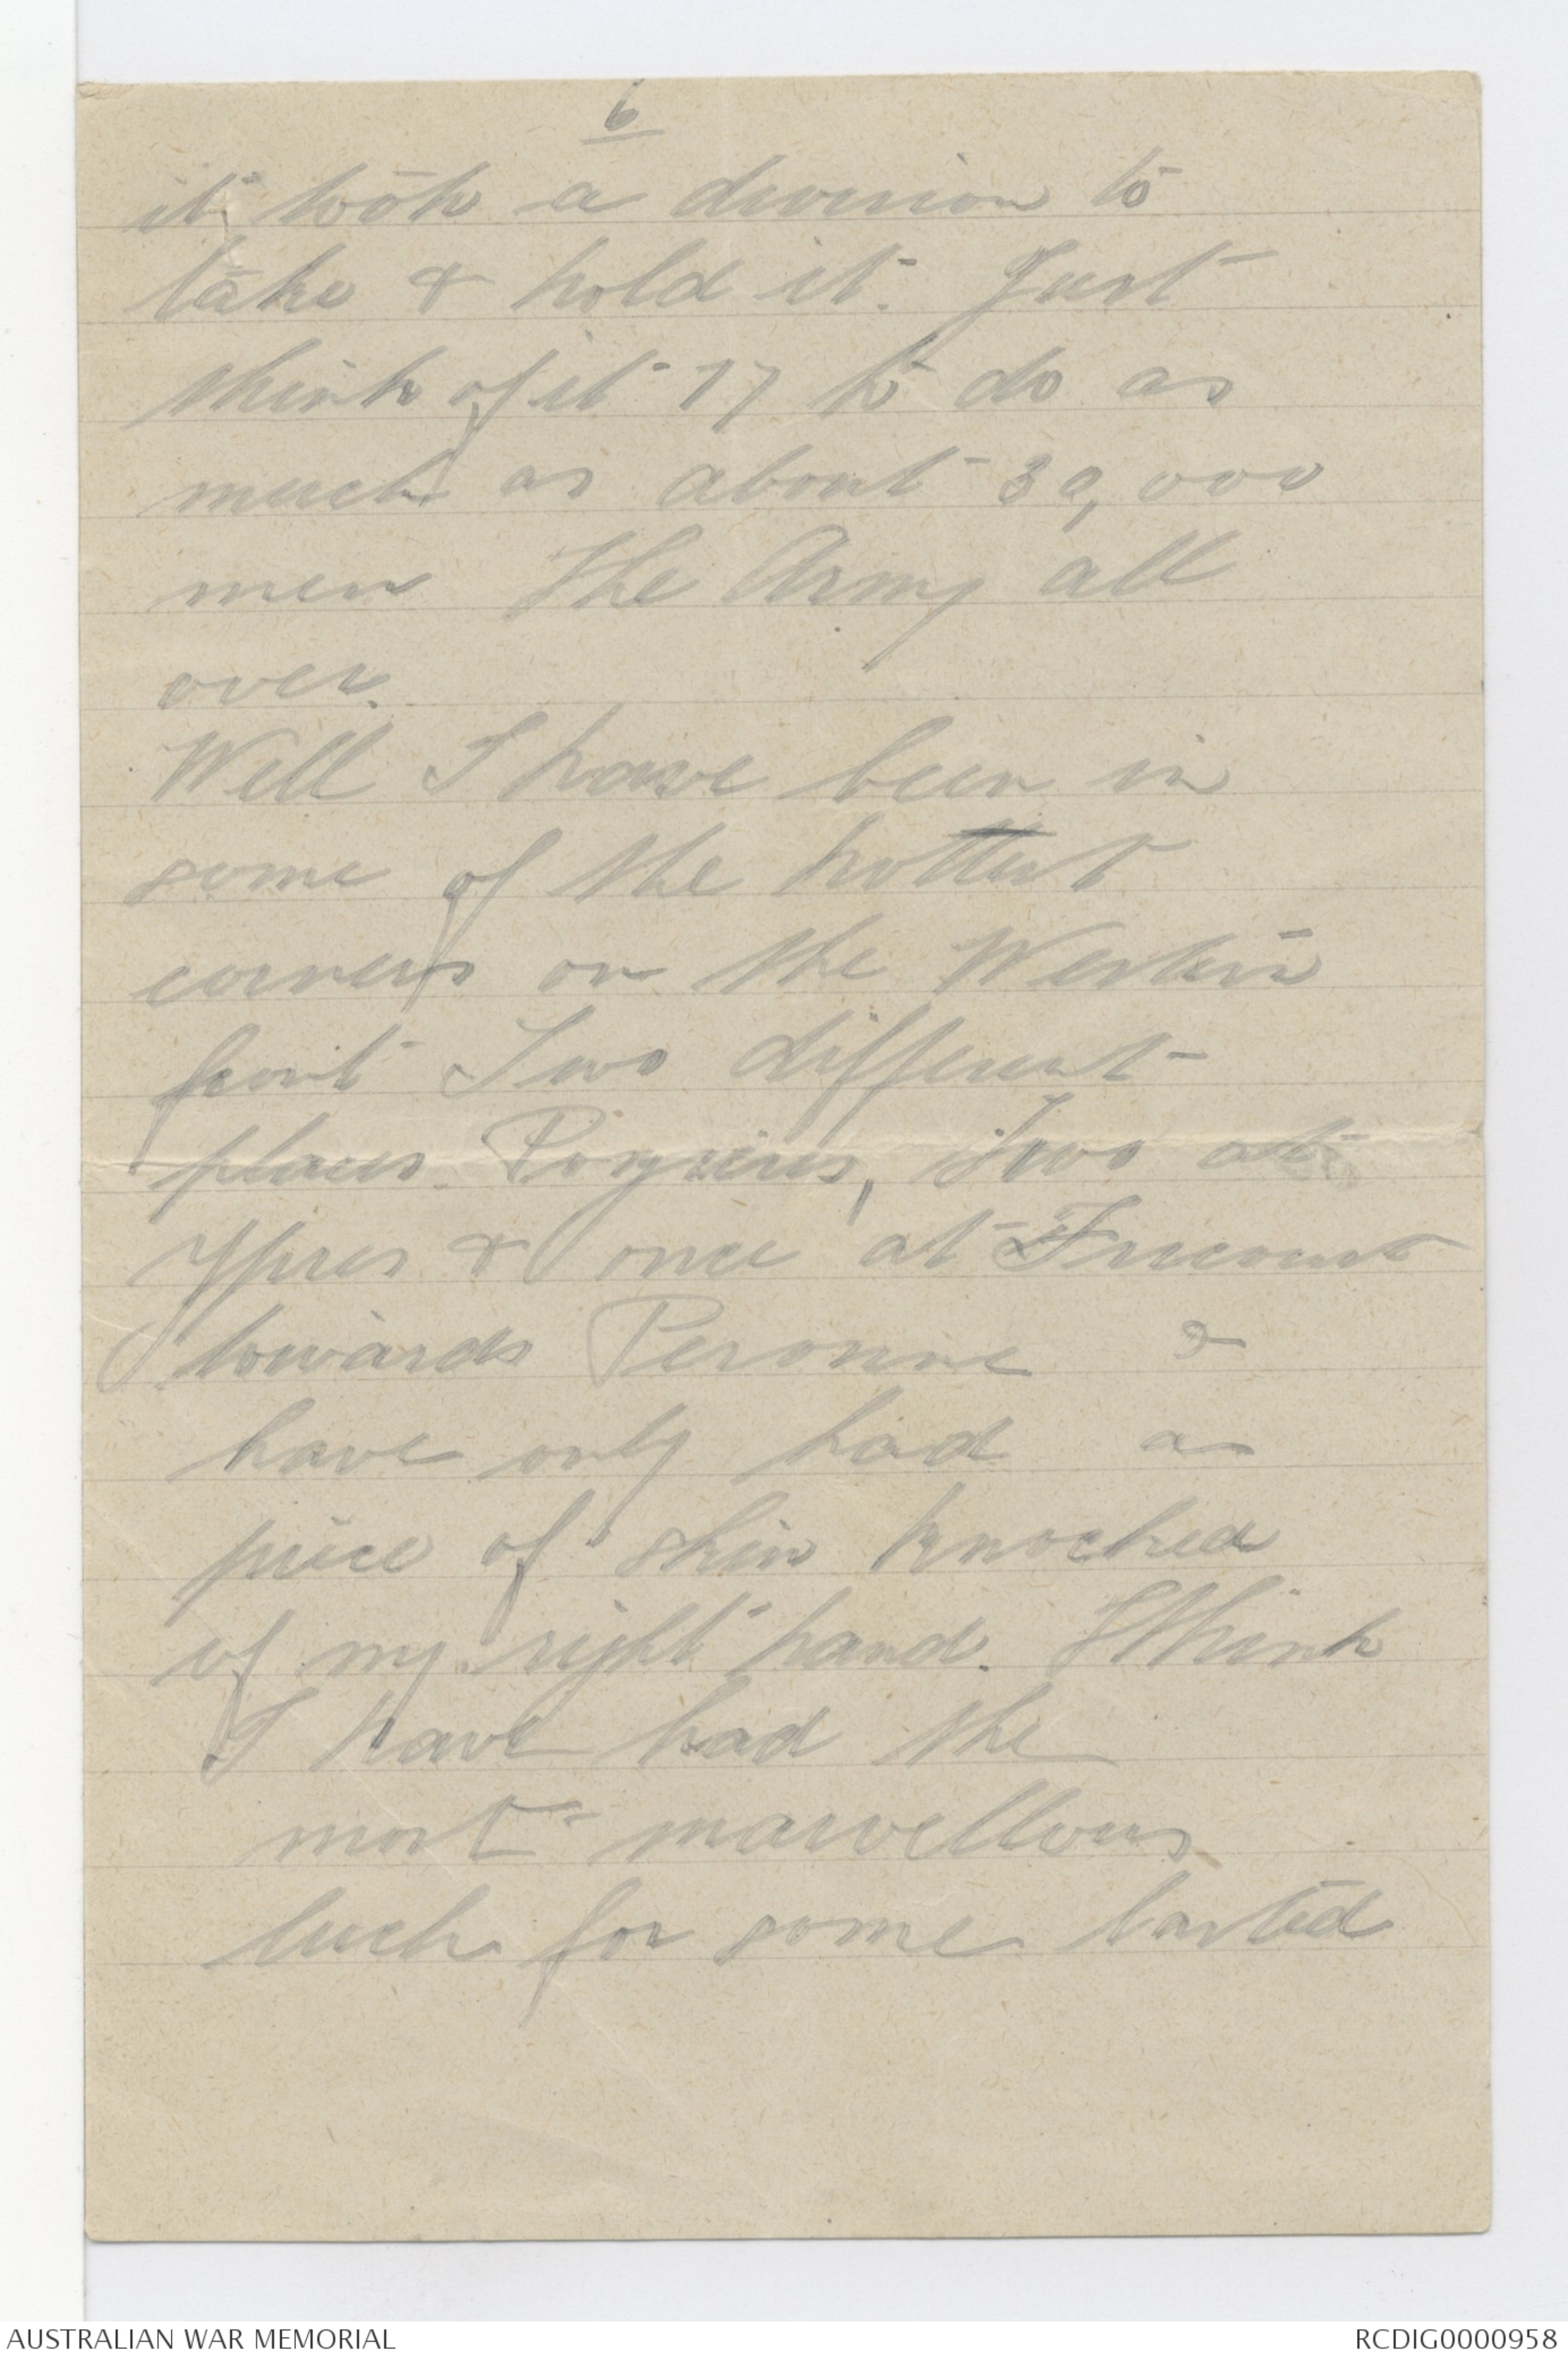 6
it took a division to
take & hold it. Just
think of it 17 to do as
much as about 30,000
men The Army all
over.
Well I have been in
some of the hottest
corners on the Western
front Two different
places. Pozieres, Two at
Ypres & once at Fricourt
towards Peronne &
have only had a
piece of skin knocked
of my right hand. I think
I have had the
most marvellous
luck for some lasted
AUSTRALIAN WAR MEMORIAL
RCDIG0000958